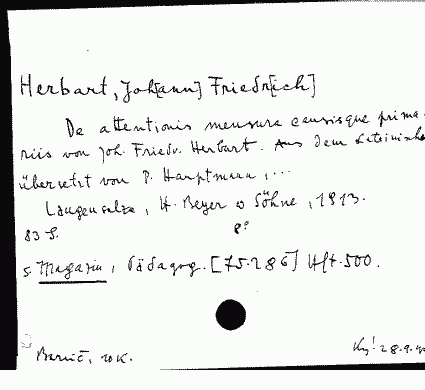 Herbart, Joh[ann] Friedr[ich]
De attentionis mensura causisque prima-
riis von Joh. Friedr. Herbart. Aus dem Lateinische
übersetzt von P. Hauptmann, ...
Langensalza, H. Beyer & Söhne, 1913.
83 S. 8°
s. Magazin, Pädagog. [75.286] Hft. 500.
Barič, 20 K. 28.9.